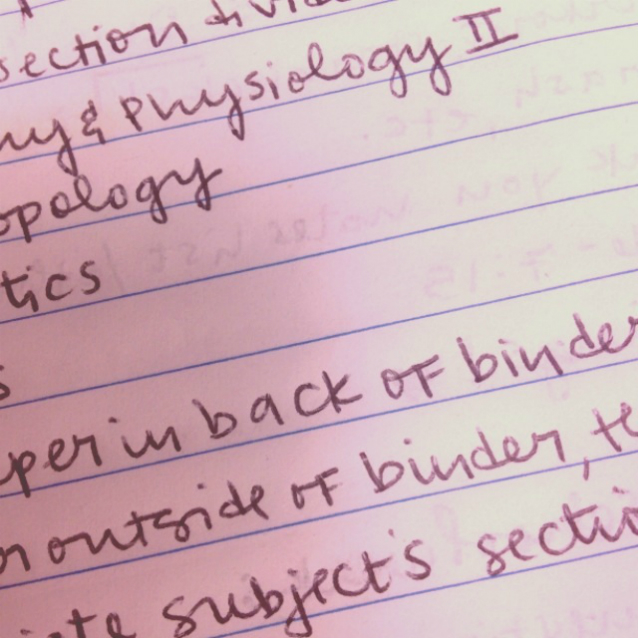 section divi
my & Physiology II
opology
tics
s
per in back of binder
n outside of binder, te
iate subject's secti